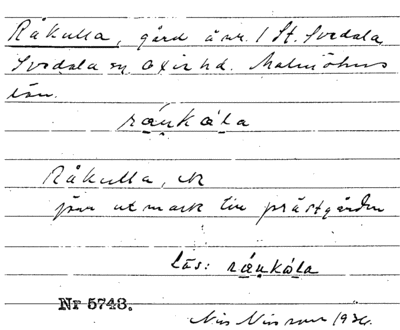 Råkulla, gård å nr. 1 St. Svedala,
Svedala sn, Oxie hd. Malmöhus
län.
råųkåla
Råkulla, 
 utmark till prästgården
läs: råųkåla
Nr 5743.
Nils Nilsson 1936.